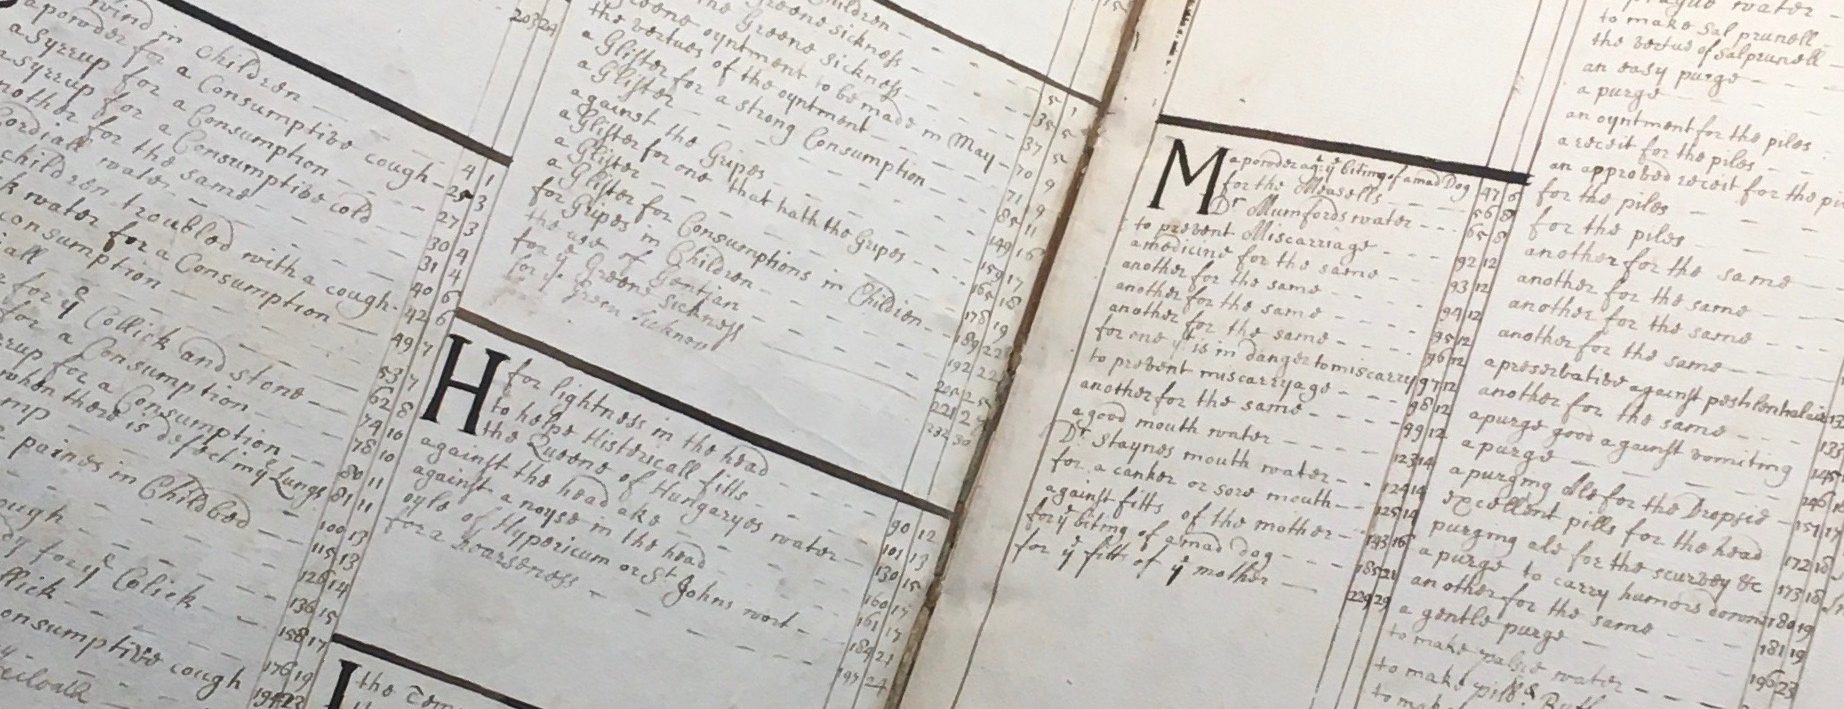 wind in children
203 24
a powder for a Consumptive cough 4 1
a Syrrup for a Consumption 25 3
a Syrrup for a Consumptive cold 27 3
another for the same 30 4
Cordiall water 31 4
children troubled with a cough 40 6
water for a Consumption 42 6
consumption 49 7
for ye Collick and stone 53 7
for a Consumption 62 8
Syrrup for a Consumption 74 10
when there is defect in ye Lungs 78 10
80 11
paines in Childbed 81 11
100 13
cough 115 13
for ye Colick 126 14
136 15
158 17
consumptive cough 176 19
Children
Greene sickness
the Greene sickness 5 1
Greene oyntment to be made in May 35 5
the vertues of the oyntment 37 5
a Glister for a strong Consumption 70 9
a Glister 71 9
against the Gripes 85 11
a Glister for one that hath the Gripes 149 16
a Glister 159 17
a Glister for Consumptions in Children 165 18
for Gripes in Children 178 19
the use of Gentian 189 22
for ye Greene Sickness 192 22
for ye Green Sickness
H for lightness in the head 90 12
to helpe Histericall fitts 101 13
the Queene of Hungaryes water 130 15
against the head ake 160 17
against a noyse in the head 161 17
oyle of Hypericum or St Johns wort 184 21
for a hoarseness 197 24
I
M a powder agt ye biting of a mad Dog 47 6
for the Measells 56 8
Dr Mumfords water 65 8
to prevent Miscarriage 92 12
a medicine for the same 93 12
another for the same 94 12
another for the same 95 12
another for the same 96 12
for one yt is in danger to miscarry 97 12
to prevent miscarryage 98 12
another for the same 99 12
a good mouth water 123 14
Dr Staynes mouth water 124 14
for a canker or sore mouth 125 14
against fitts of the mother 143 16
for ye biting of a mad dog 185 21
for ye fitts of ye mother 229 29
plague water
to make Sal prunell
the vertue of Salprunell
an easy purge
a purge
an oyntment for the piles
a receit for the piles
an approved receit for the
for the piles
for the piles
another for the same
another for the same
another for the same
another for the same
a preservative against pestilential
another for the same
a purge good against vomiting
a purge
a purging Ale for the Dropsie
excellent pills for the head
purging ale for the scurvey &c 172 18
a purge to carry humors downe 173 18
another for the same 180 19
a gentle purge 181 19
to make palsie water 196 23
to make pills
to make